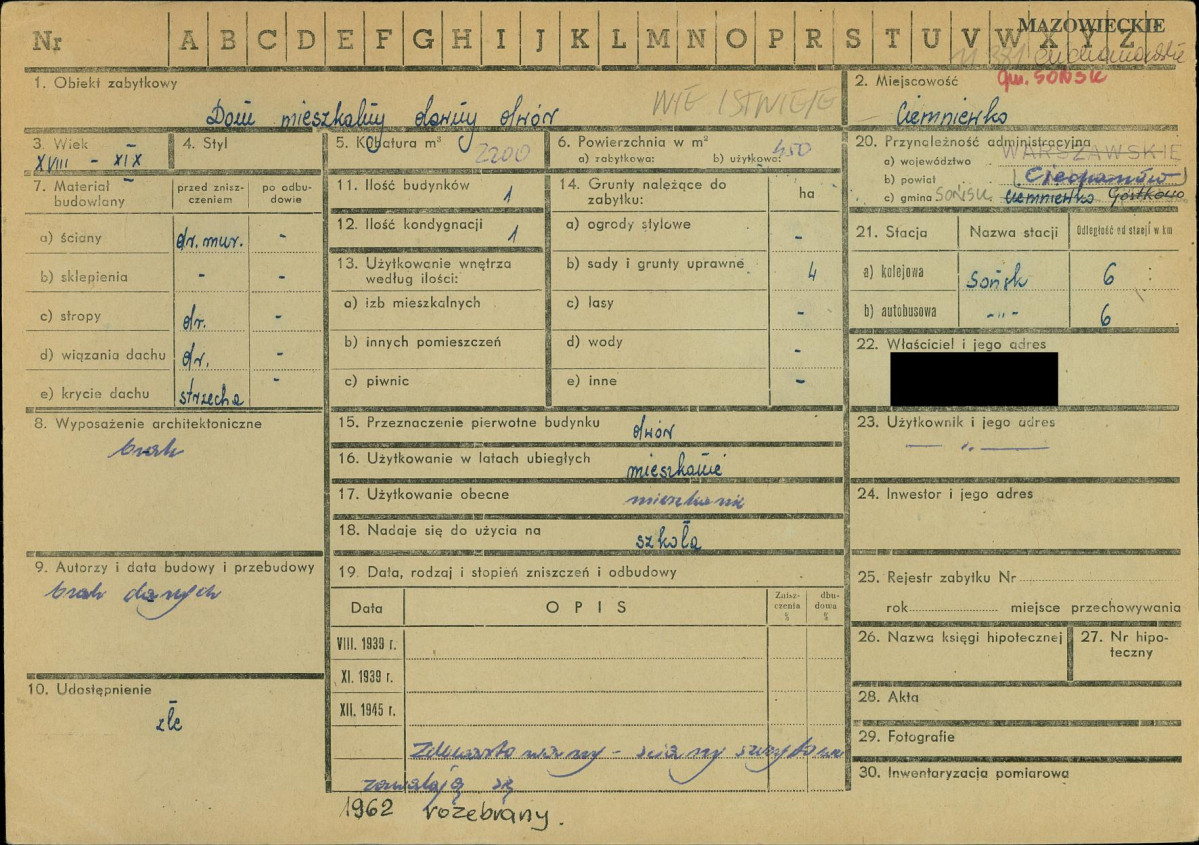 Nr A B C D E F G H I J K L M N O P R S T U V W X Y Z
MAZOWIECKIE
ciechanowskie
gm. SOŃSK
1. Obiekt zabytkowy
Dom mieszkalny dawny dwór
NIE ISTNIEJE
2. Miejscowość
Ciemniewko
3. Wiek
XVIII - XIX
4. Styl
5. Kubatura m³ 2200
6. Powierzchnia w m²
a) zabytkowa: b) użytkowa: 450
7. Materiał budowlany
przed zniszczeniem
po odbudowie
a) ściany dr. mur. -
b) sklepienia - -
c) stropy dr. -
d) wiązania dachu dr. -
e) krycie dachu strzecha -
8. Wyposażenie architektoniczne
brak
9. Autorzy i data budowy i przebudowy
brak danych
10. Udostępnienie
złe
11. Ilość budynków 1
12. Ilość kondygnacji 1
13. Użytkowanie wnętrza
według ilości:
a) izb mieszkalnych
b) innych pomieszczeń
c) piwnic
14. Grunty należące do
zabytku: ha
a) ogrody stylowe -
b) sady i grunty uprawne 4
c) lasy -
d) wody -
e) inne -
15. Przeznaczenie pierwotne budynku dwór
16. Użytkowanie w latach ubiegłych mieszkanie
17. Użytkowanie obecne mieszkanie
18. Nadaje się do użycia na szkołą
19. Data, rodzaj i stopień zniszczeń i odbudowy
Data OPIS Zniszczenia % dbudowa %
VIII. 1939 r.
XI. 1939 r.
XII. 1945 r.
zdewastowany - ściany szczytowe
zawalają się
1962 rozebrany.
20. Przynależność administracyjna
a) województwo WARSZAWSKIE
b) powiat Ciechanów
c) gmina SOŃSK Ciemniewko Gostkowo
21. Stacja Nazwa stacji Odległość od stacji w km
a) kolejowa Sońsk 6
b) autobusowa -"- 6
22. Właściciel i jego adres
23. Użytkownik i jego adres
— " —
24. Inwestor i jego adres
25. Rejestr zabytku Nr
rok miejsce przechowywania
26. Nazwa księgi hipotecznej
27. Nr hipoteczny
28. Akta
29. Fotografie
30. Inwentaryzacja pomiarowa